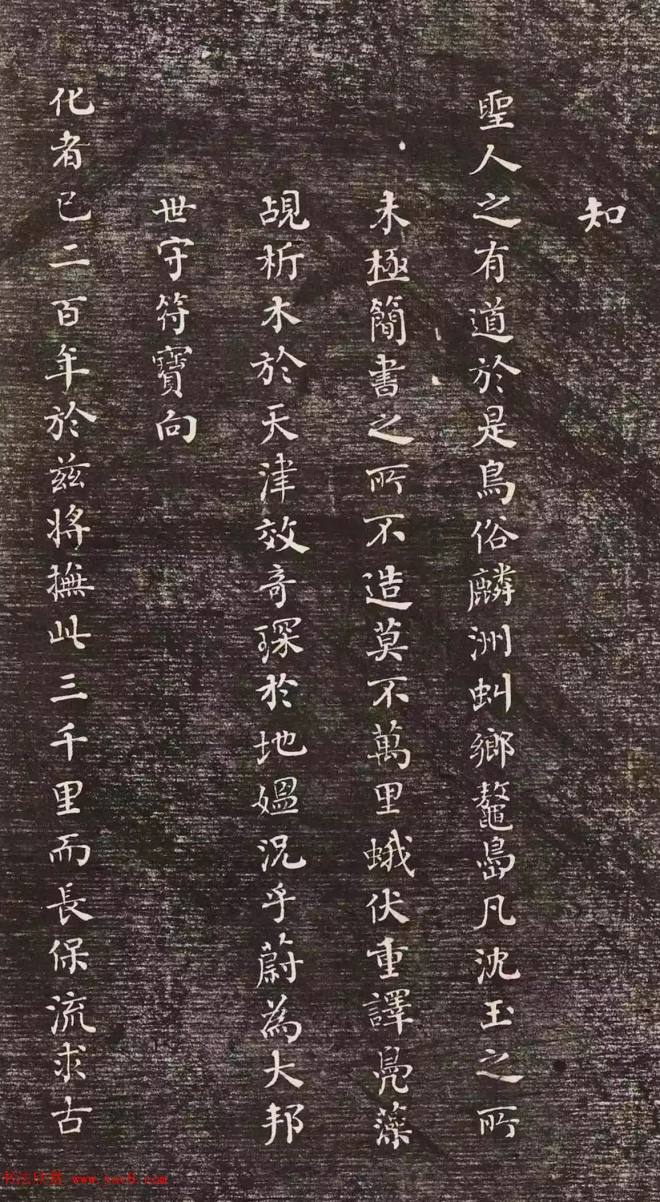 知
聖人之有道於是鳥俗麟洲虯鄉鼇島凡沈玉之所
未極簡書之所不造莫不萬里蛾伏重譯鳧藻
覘析木於天津效奇琛於地媼況乎蔚為大邦
世守符寶向
化者已二百年於茲將撫此三千里而長保流求古
www.yac8.com